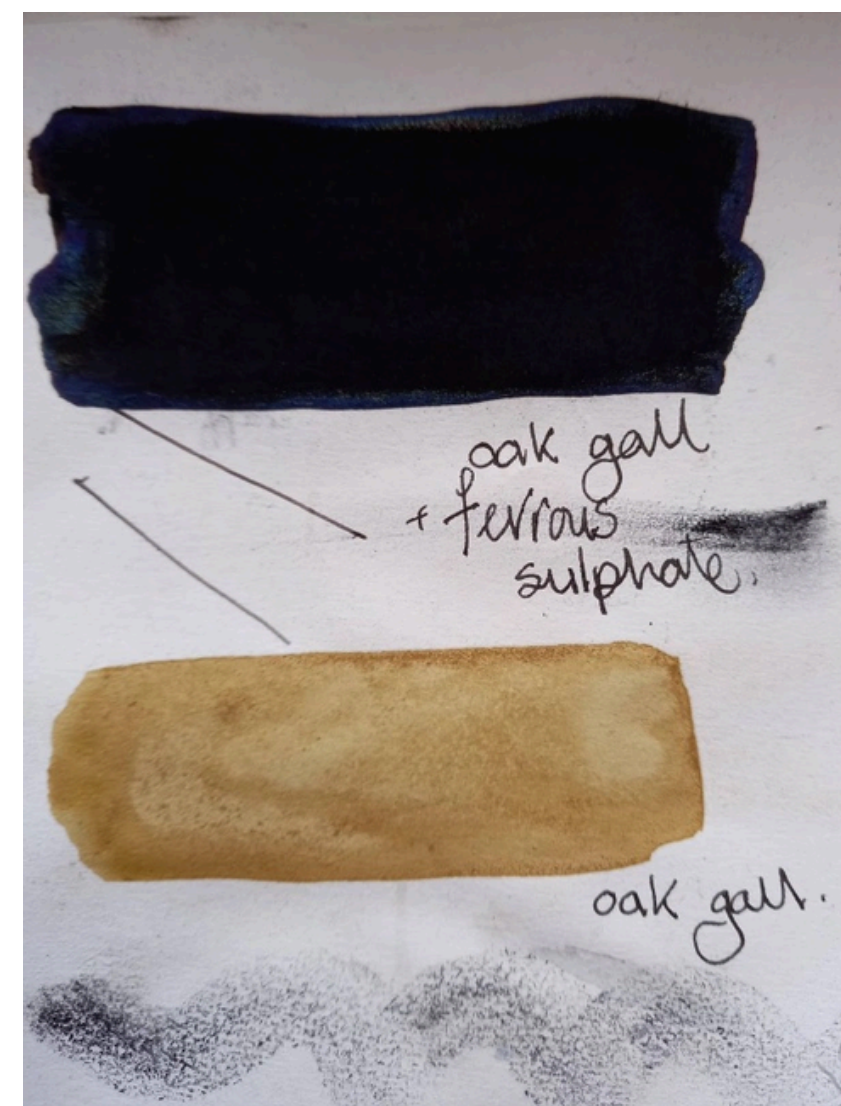 oak gall
+ ferrous
sulphate.
oak gall.